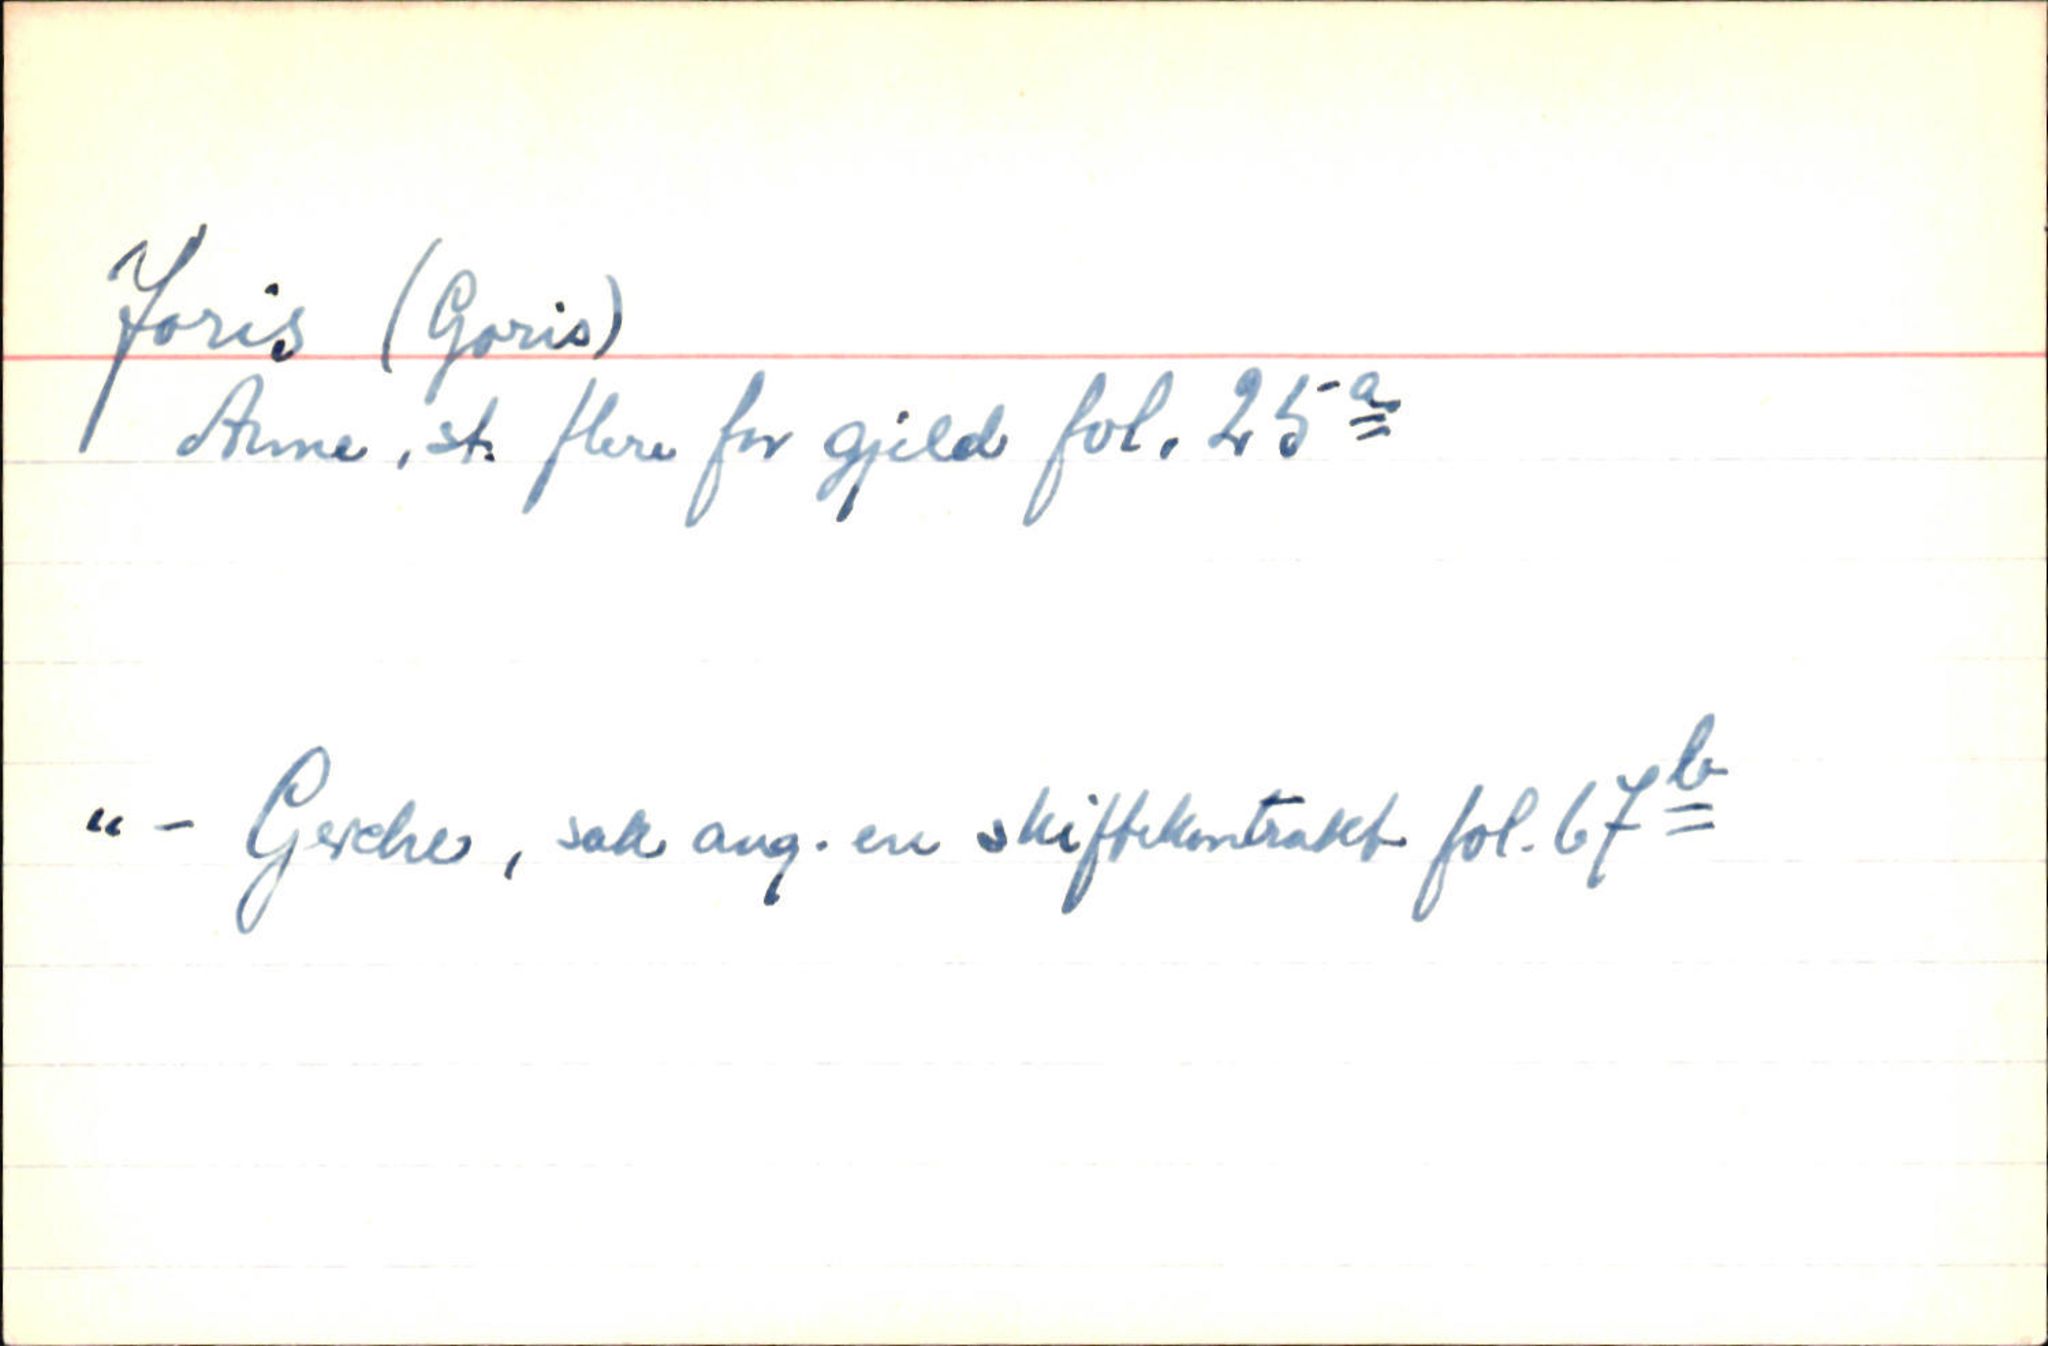 Joris (Goris)
Anne, st. flere for gjeld fol. 25a
"- Gesche, sak ang. en skiftekontrakt fol. 67b